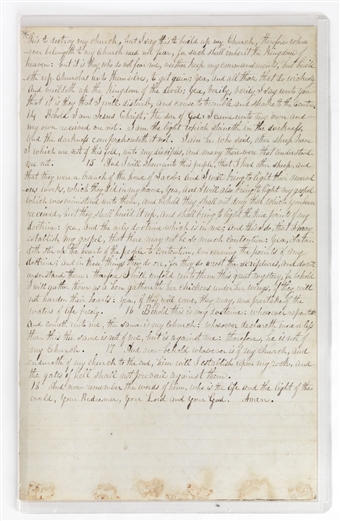 this to destroy my church, but I say this to build up my church, therefore whoso
ever belongeth to my church need not fear, for such shall inherit the Kingdom of
heaven: but it is they who do not fear me, neither keep my commandments, but build-
eth up churches unto themselves, to get gain; yea, and all those that do wickedly,
and buildeth up the Kingdom of the Devil; yea, verily, verily I say unto you
that it is they that I will disturb, and cause to tremble and shake to the centre.
14 Behold I am Jesus Christ, the Son of God: I came unto my own, and
my own received me not. I am the light which shineth in the darkness,
and the darkness comprehendeth it not. I am he who said, other sheep have
I which are not of this fold, unto my disciples, and many there were that understood
me not. 15 And I will shew unto this people, that I had other sheep, and
that they were a branch of the house of Jacob: And I will bring to light their marvel-
ous works, which they did in my name, yea, and I will also bring to light my gospel
which was ministered unto them, and behold they shall not deny that which you have
received, but they shall build it up, and shall bring to light the true points of my
doctrine: yea, and the only doctrine which is in me; and this I do, that I may
establish my gospel, that there may not be so much contention: yea, Satan
doth stir up the hearts of the people to contention, concerning the points of my
doctrine; and in these things they do err, for they do wrest the scriptures, and do not
understand them: therefore, I will unfold unto them this great mystery, for behold
I will gather them as a hen gathereth her chickens under her wings, if they will
not harden their hearts: Yea, if they will come, they may, and partake of the
waters of life freely. 16 Behold this is my doctrine: whosoever repenteth
and cometh unto me, the same is my church: whosoever declareth more or less
than this the same is not of me, but is against me: therefore, he is not of
my church. 17 And now behold whosoever is of my church, and
endureth of my church to the end, him will I establish upon my rock, and
the gates of hell shall not prevail against them.
18 And now remember the words of him, who is the life and the light of the
world, your Redeemer, your Lord and your God. Amen.